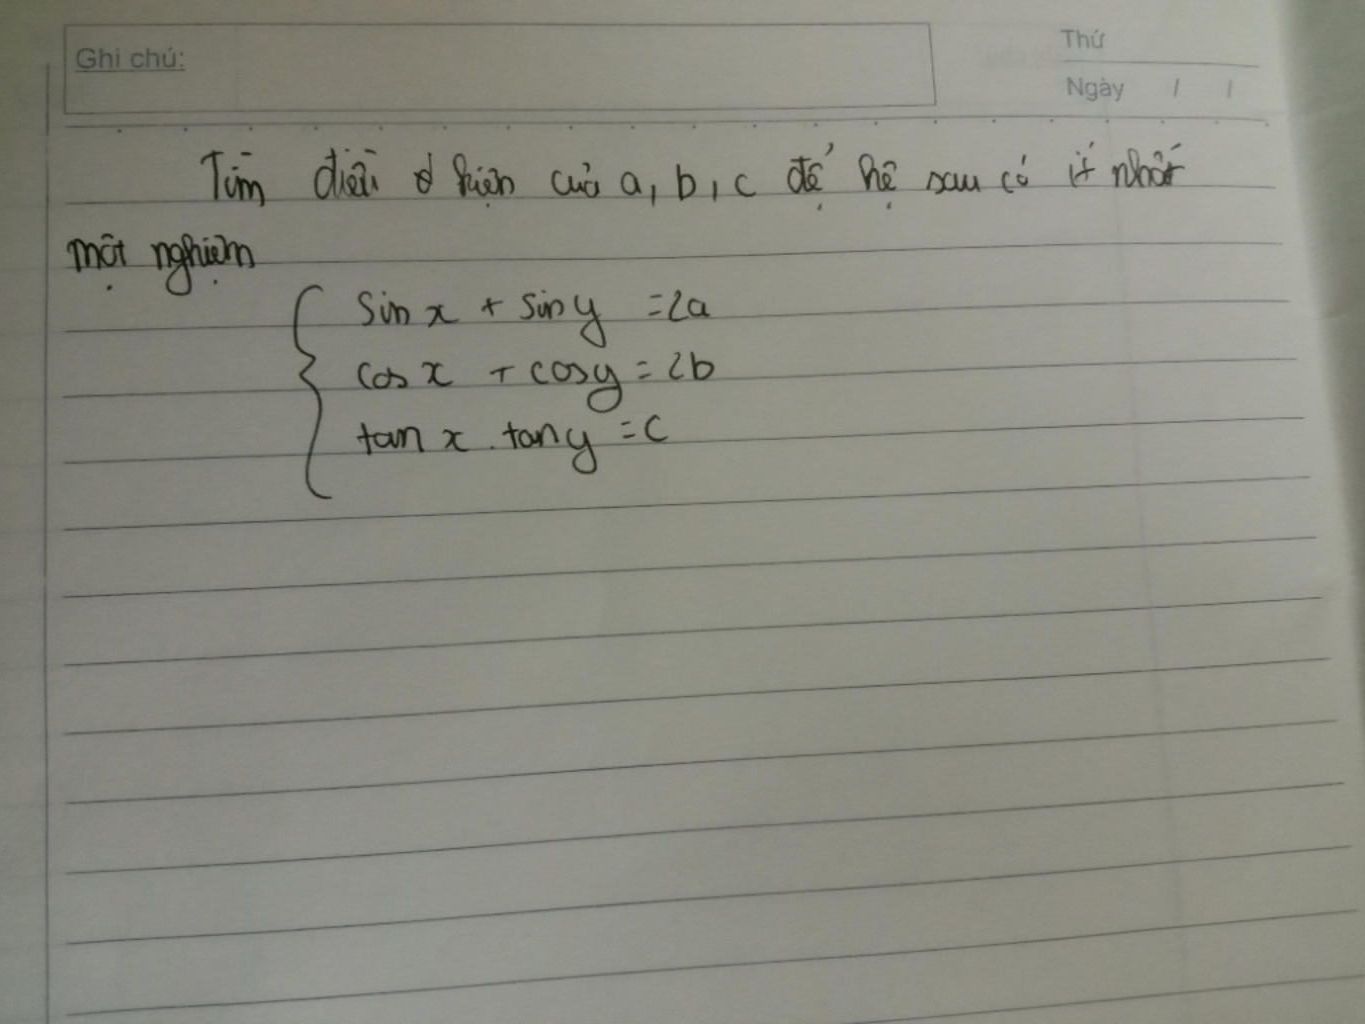 Ghi chú:
Thứ
Ngày / /
Tìm điều kiện của a, b, c để hệ sau có ít nhất
một nghiệm
sin x + sin y = 2a
cos x + cos y = 2b
tan x . tan y = c